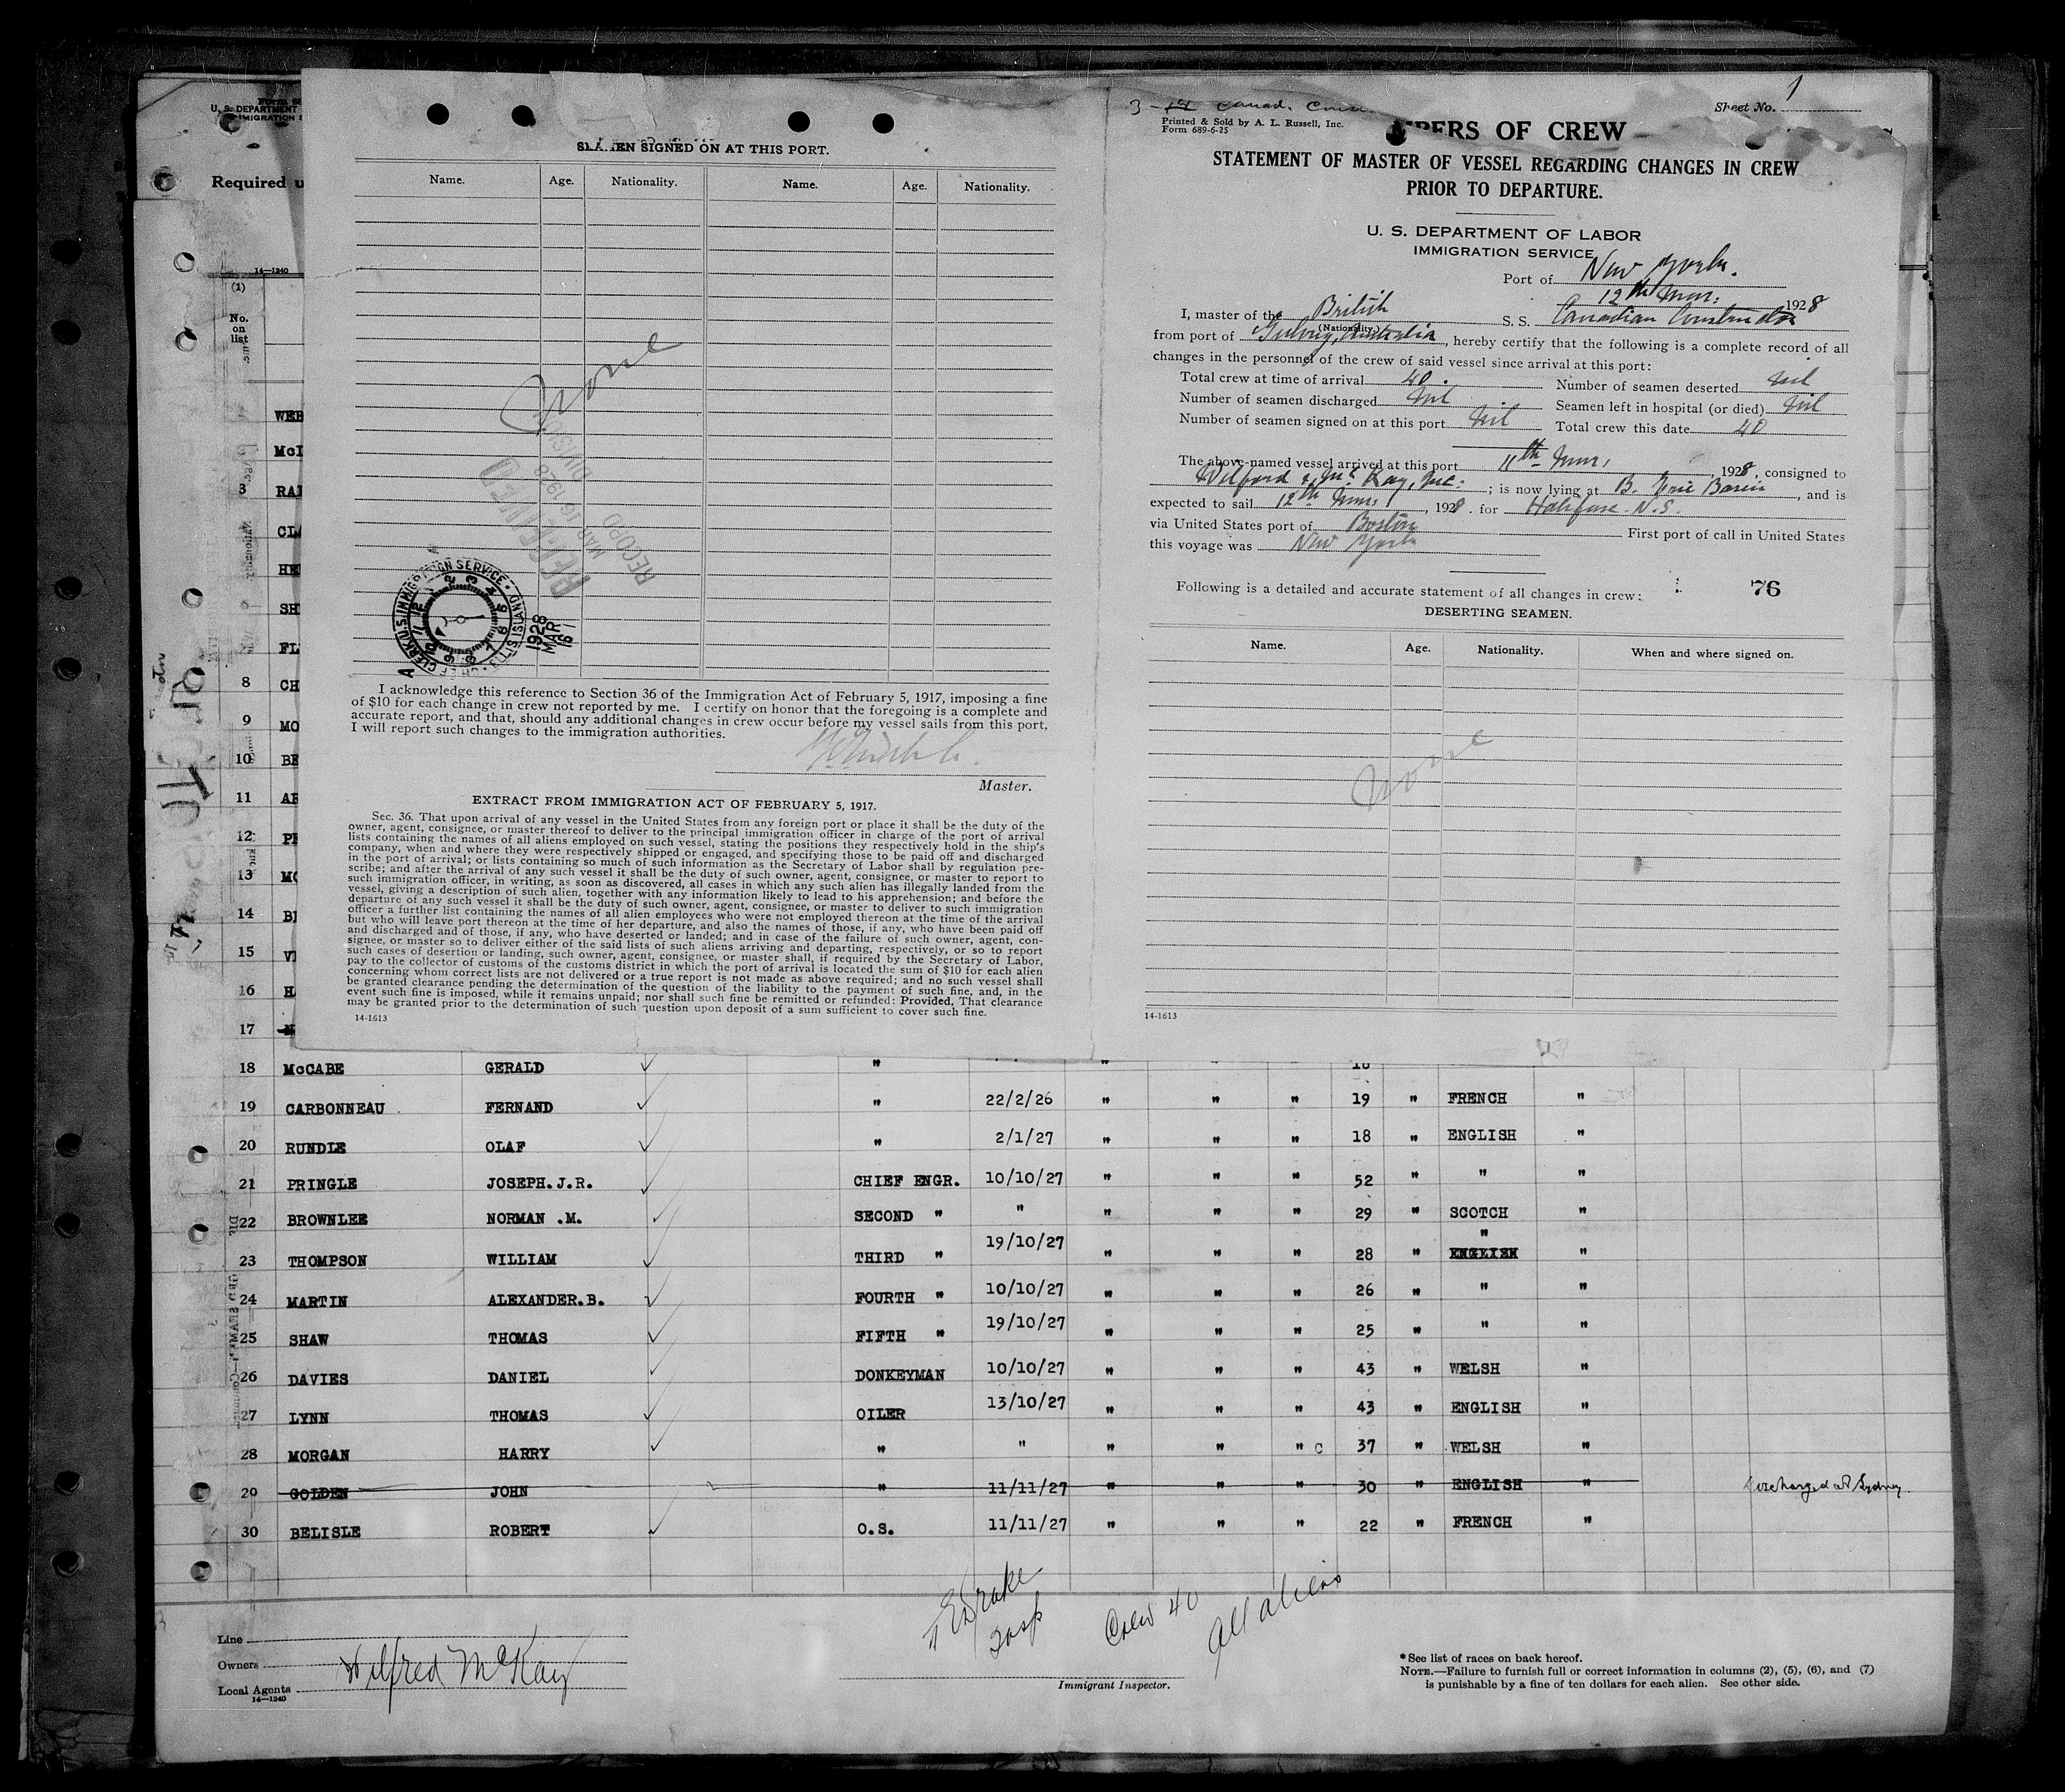 U. S. DEPARTMENT
Required u
14—1240
(1)
No.
on
list
WEB
3 RAI
CLA
SH
FL
8 CH
9 MO
10 BE
11
12
13
14
15
16
17
SEAMEN SIGNED ON AT THIS PORT.
Name. Age. Nationality. Name. Age. Nationality.
None
RECEIVED
MAR 16 1928
RECORD DIVISION
1928
MAR
16
I acknowledge this reference to Section 36 of the Immigration Act of February 5, 1917, imposing a fine
of $10 for each change in crew not reported by me. I certify on honor that the foregoing is a complete and
accurate report, and that, should any additional changes in crew occur before my vessel sails from this port,
I will report such changes to the immigration authorities.
Master.
EXTRACT FROM IMMIGRATION ACT OF FEBRUARY 5, 1917.
Sec. 36. That upon arrival of any vessel in the United States from any foreign port or place it shall be the duty of the
owner, agent, consignee, or master thereof to deliver to the principal immigration officer in charge of the port of arrival
lists containing the names of all aliens employed on such vessel, stating the positions they respectively hold in the ship's
company, when and where they were respectively shipped or engaged, and specifying those to be paid off and discharged
in the port of arrival; or lists containing so much of such information as the Secretary of Labor shall by regulation pre-
scribe; and after the arrival of any such vessel it shall be the duty of such owner, agent, consignee, or master to report to
such immigration officer, in writing, as soon as discovered, all cases in which any such alien has illegally landed from the
vessel, giving a description of such alien, together with any information likely to lead to his apprehension; and before the
departure of any such vessel it shall be the duty of such owner, agent, consignee, or master to deliver to such immigration
officer a further list containing the names of all alien employees who were not employed thereon at the time of the arrival
but who will leave port thereon at the time of her departure, and also the names of those, if any, who have been paid off
and discharged and of those, if any, who have deserted or landed; and in case of the failure of such owner, agent, con-
signee, or master so to deliver either of the said lists of such aliens arriving and departing, respectively, or so to report
such cases of desertion or landing, such owner, agent, consignee, or master shall, if required by the Secretary of Labor,
pay to the collector of customs of the customs district in which the port of arrival is located the sum of $10 for each alien
concerning whom correct lists are not delivered or a true report is not made as above required; and no such vessel shall
be granted clearance pending the determination of the question of the liability to the payment of such fine, and, in the
event such fine is imposed, while it remains unpaid; nor shall such fine be remitted or refunded: Provided, That clearance
may be granted prior to the determination of such question upon deposit of a sum sufficient to cover such fine.
14-1613
Sheet No. 1
Printed & Sold by A. L. Russell, Inc.
Form 689-6-25
MPERS OF CREW
STATEMENT OF MASTER OF VESSEL REGARDING CHANGES IN CREW
PRIOR TO DEPARTURE.
U. S. DEPARTMENT OF LABOR
IMMIGRATION SERVICE
Port of New York.
12th Mar. 1928
I, master of the British S. S. Canadian Constructor
(Nationality)
from port of Australia, hereby certify that the following is a complete record of all
changes in the personnel of the crew of said vessel since arrival at this port:
Total crew at time of arrival 40. Number of seamen deserted Nil
Number of seamen discharged Nil Seamen left in hospital (or died) Nil
Number of seamen signed on at this port Nil Total crew this date 40
The above-named vessel arrived at this port 11th Mar, 1928, consigned to
Wilford & McKay, Inc. ; is now lying at B. Erie Basin, and is
expected to sail 12th Mar, 1928. for Halifax. N.S.
via United States port of Boston First port of call in United States
this voyage was New York
Following is a detailed and accurate statement of all changes in crew:
76
DESERTING SEAMEN.
Name. Age. Nationality. When and where signed on.
None
14-1613
18 McCABE GERALD "
19 CARBONNEAU FERNAND " 22/2/26 " " " 19 " FRENCH "
20 RUNDLE OLAF " 2/1/27 " " " 18 " ENGLISH "
21 PRINGLE JOSEPH.J.R. CHIEF ENGR. 10/10/27 " " " 52 " " "
22 BROWNLEE NORMAN .M. SECOND " " " " " 29 " SCOTCH "
23 THOMPSON WILLIAM THIRD " 19/10/27 " " " 28 " " ENGLISH "
24 MARTIN ALEXANDER.B. FOURTH " 10/10/27 " " " 26 " " "
25 SHAW THOMAS FIFTH " 19/10/27 " " " 25 " " "
26 DAVIES DANIEL DONKEYMAN 10/10/27 " " " 43 " WELSH "
27 LYNN THOMAS OILER 13/10/27 " " " 43 " ENGLISH "
28 MORGAN HARRY " " " " " c 37 " WELSH "
29 GOLDEN JOHN " 11/11/27 " " " 30 " ENGLISH " Discharged at Sydney.
30 BELISLE ROBERT O.S. 11/11/27 " " " 22 " FRENCH "
Crew 40
All aliens
Line
Owners
Local Agents Wilfred McKay
14—1240
Immigrant Inspector.
* See list of races on back hereof.
NOTE.—Failure to furnish full or correct information in columns (2), (5), (6), and (7)
is punishable by a fine of ten dollars for each alien. See other side.